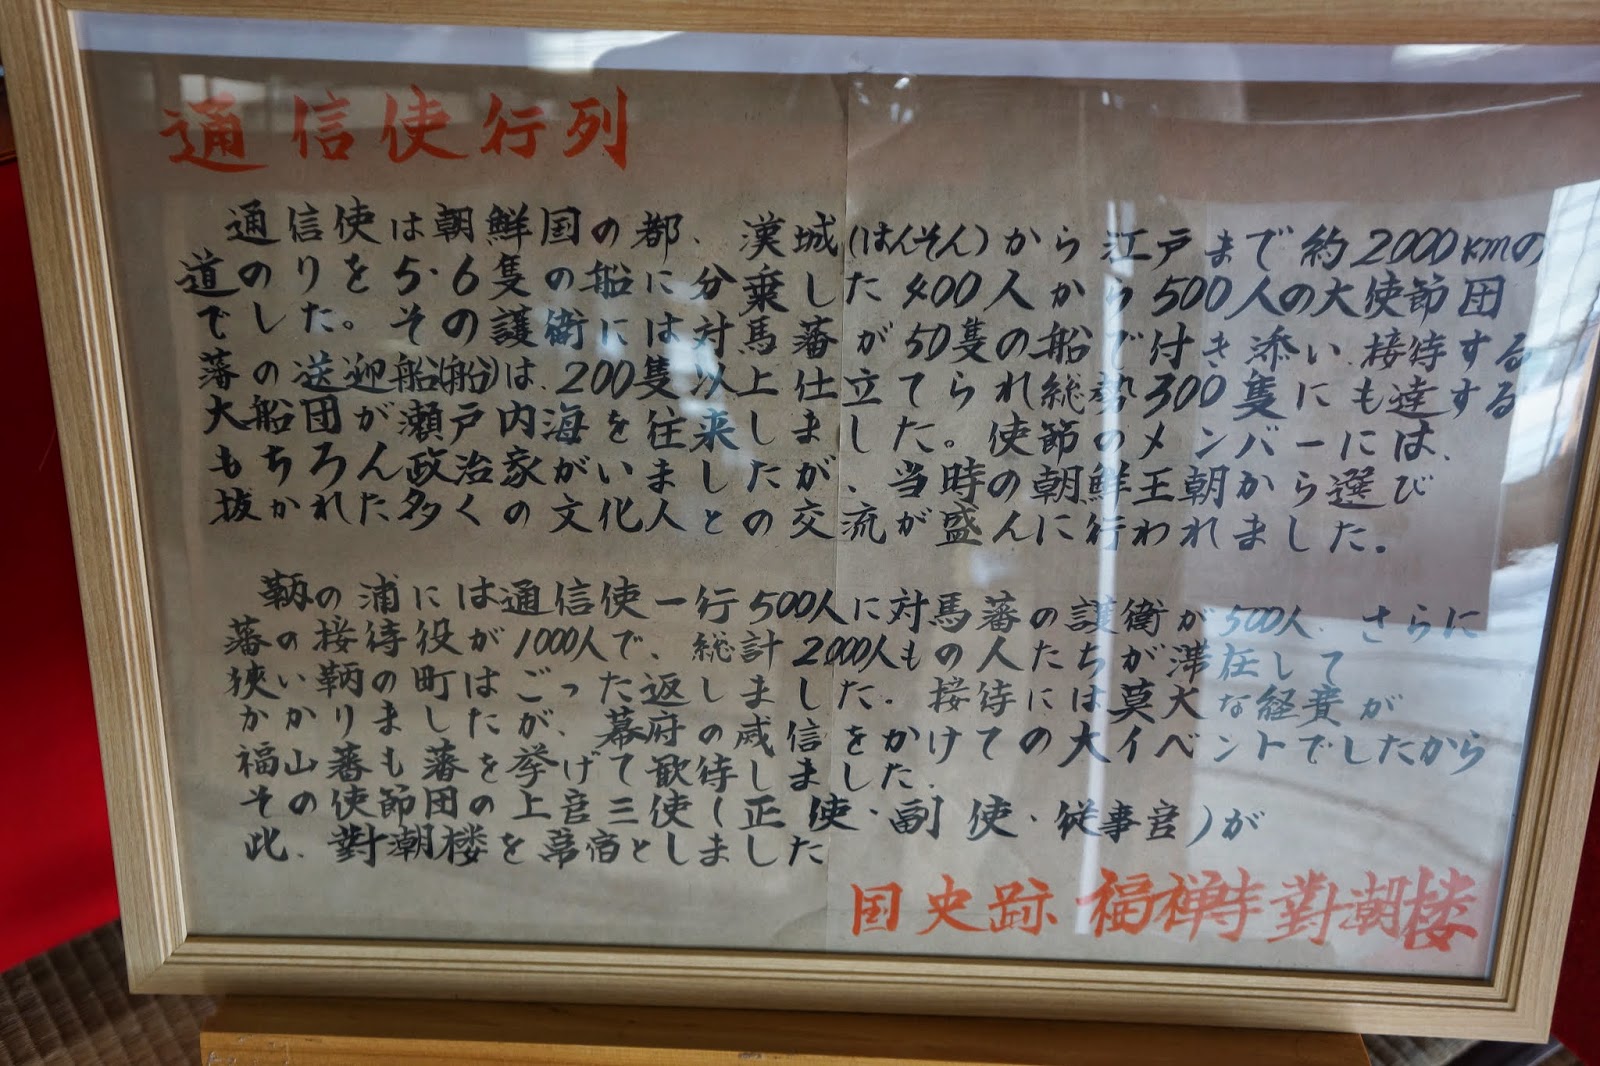 通信使行列
通信使は朝鮮国の都、漢城(はんそん)から江戸まで約2000kmの
道のりを5・6隻の船に分乗した400人から500人の大使節団
でした。その護衛には対馬藩が50隻の船で付き添い、接待する
藩の送迎船(船)は、200隻以上仕立てられ総勢300隻にも達する
大船団が瀬戸内海を往来しました。使節のメンバーには、
もちろん政治家がいましたが、当時の朝鮮王朝から選び
抜かれた多くの文化人との交流が盛んに行われました。
鞆の浦には通信使一行500人に対馬藩の護衛が500人、さらに
藩の接待役が1000人で、総計2000人もの人たちが滞在して
狭い鞆の町はごった返しました。接待には莫大な経費が
かかりましたが、幕府の威信をかけての大イベントでしたから
福山藩も藩を挙げて歓待しました。
その使節団の上官三使(正使・副使・従事官)が
此、對潮楼を常宿としました
国史跡 福禅寺對潮楼